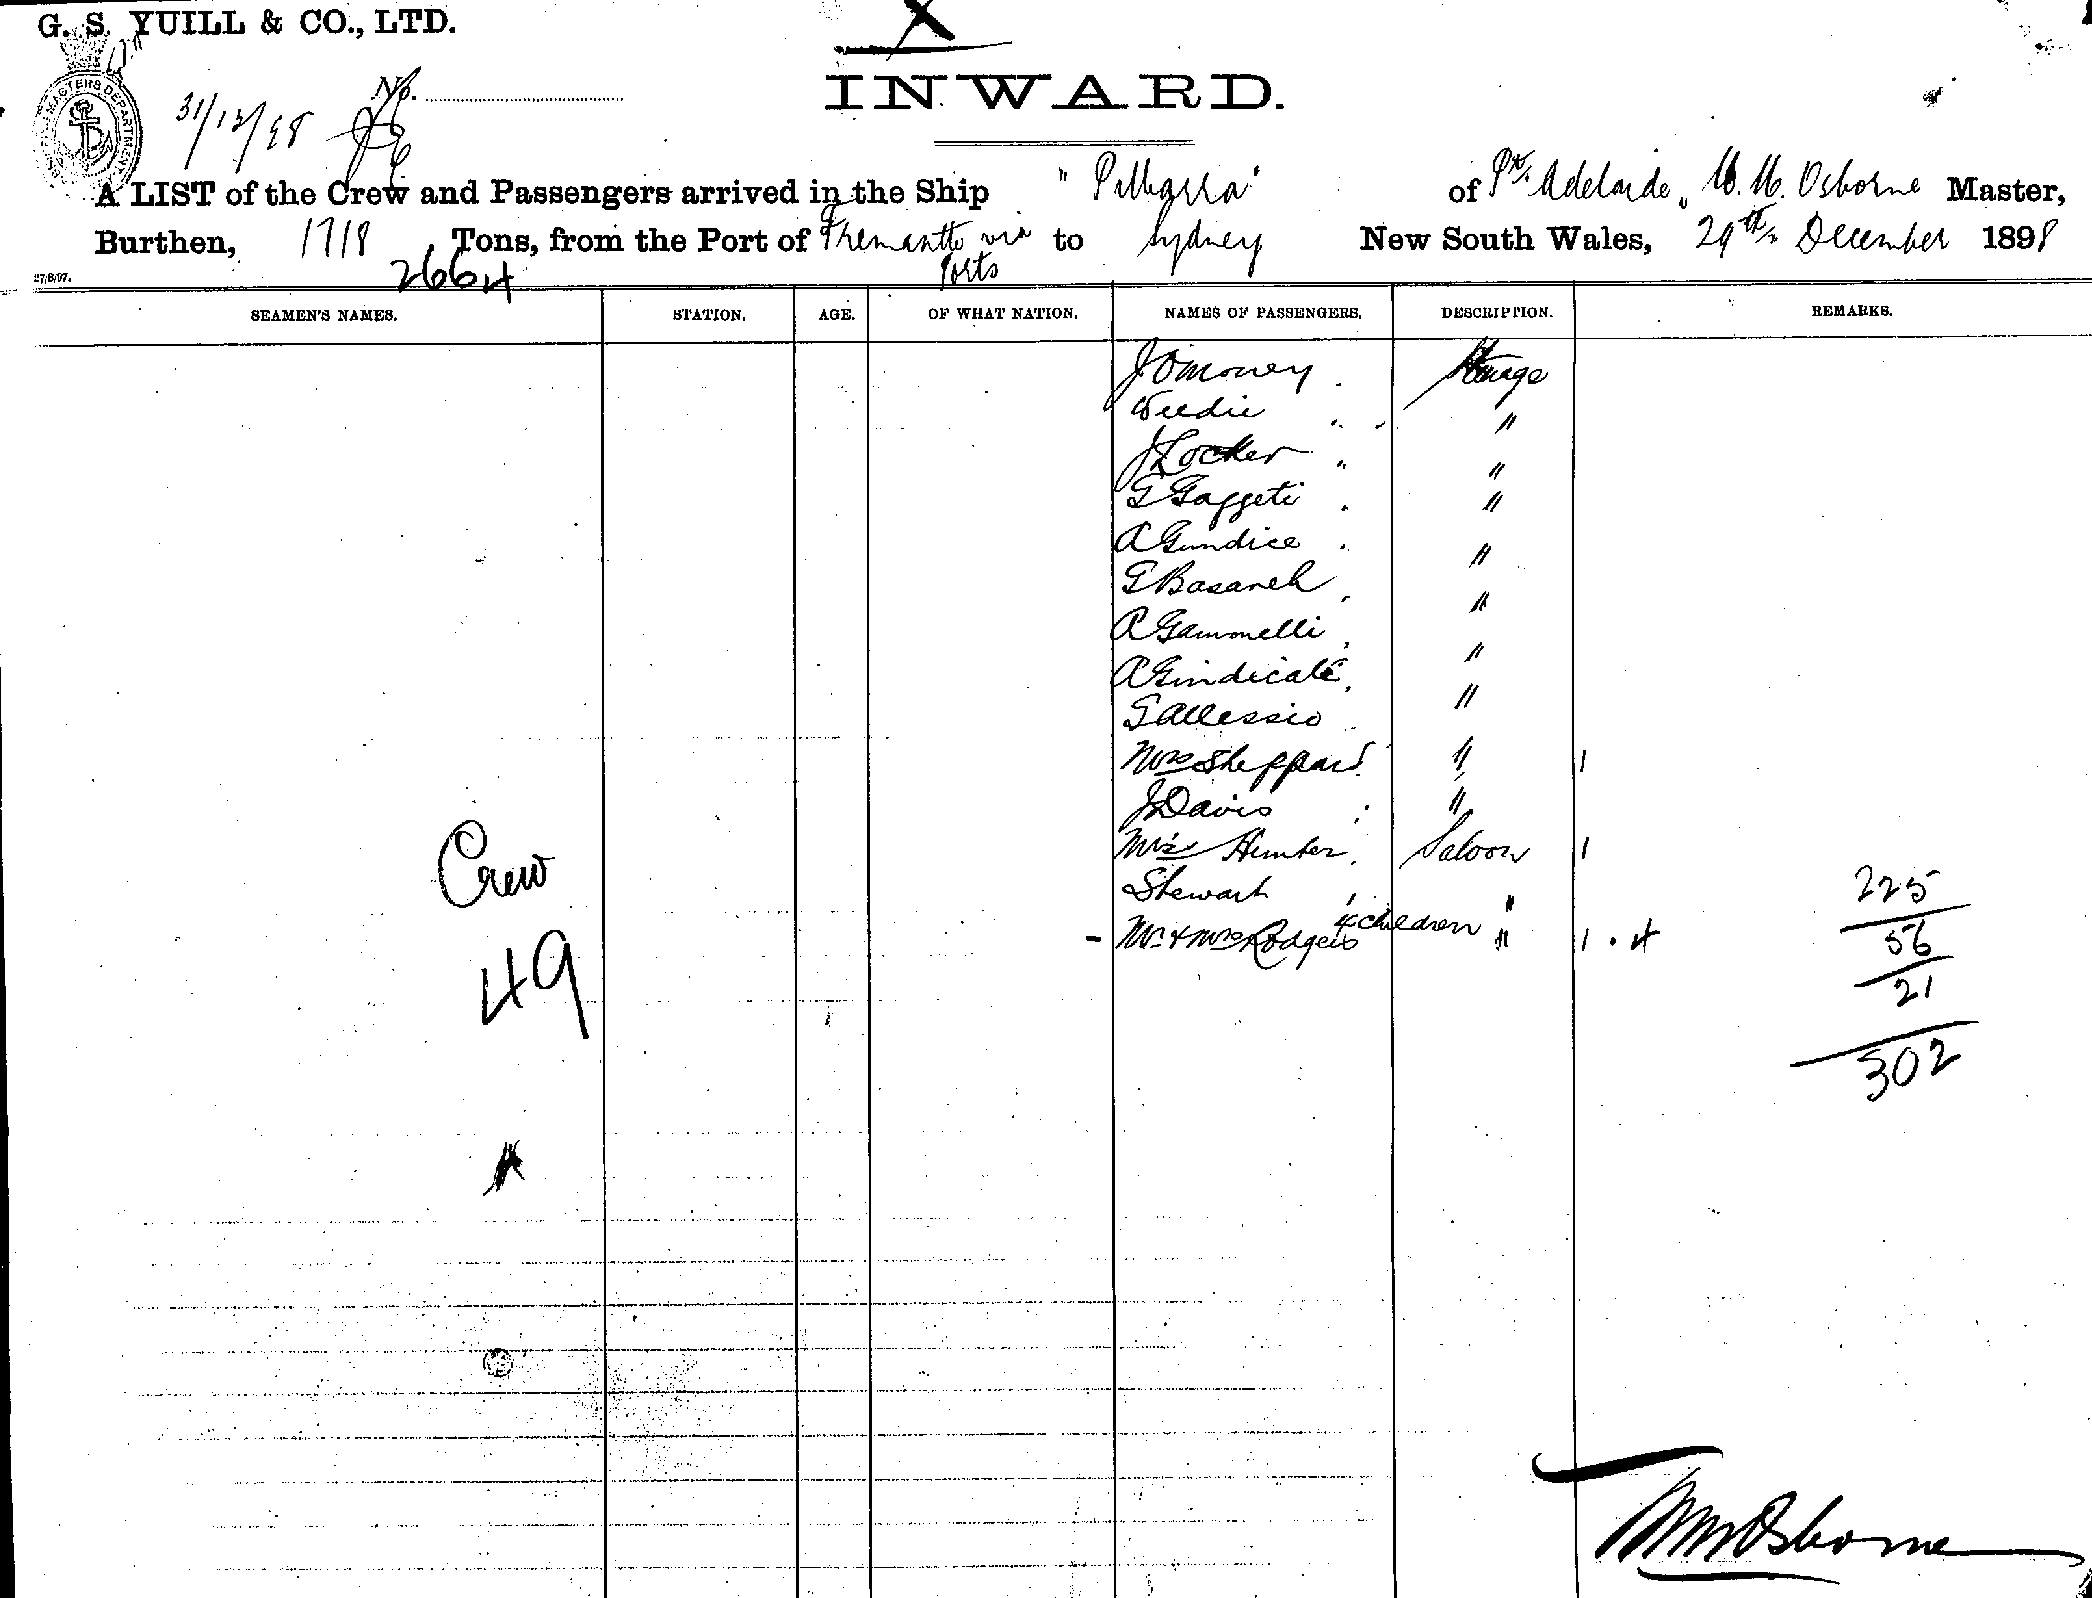 G. S. YUILL & CO., LTD.
No.
31/12/98
INWARD.
A LIST of the Crew and Passengers arrived in the Ship "Pilbarra" of Pt. Adelaide, W. W. Osborne Master,
Burthen, 1718 Tons, from the Port of Fremantle via Ports to Sydney New South Wales, 29th December 1898
2664
27/8/97.
SEAMEN'S NAMES. STATION. AGE. OF WHAT NATION. NAMES OF PASSENGERS. DESCRIPTION. REMARKS.
J Omoney Steerage
Weedie "
J Locker "
G Gaggeti "
A Gundice "
G Basaneh "
A Gammelli "
A Gindicate "
G Allessio "
Mrs Sheppard " 1
J Davis "
Mrs Humber Saloon 1
Stewart "
4 children
Mr & Mrs Rodgers " 1 . 4
Crew
49
225
56
21
302
WM Osborne